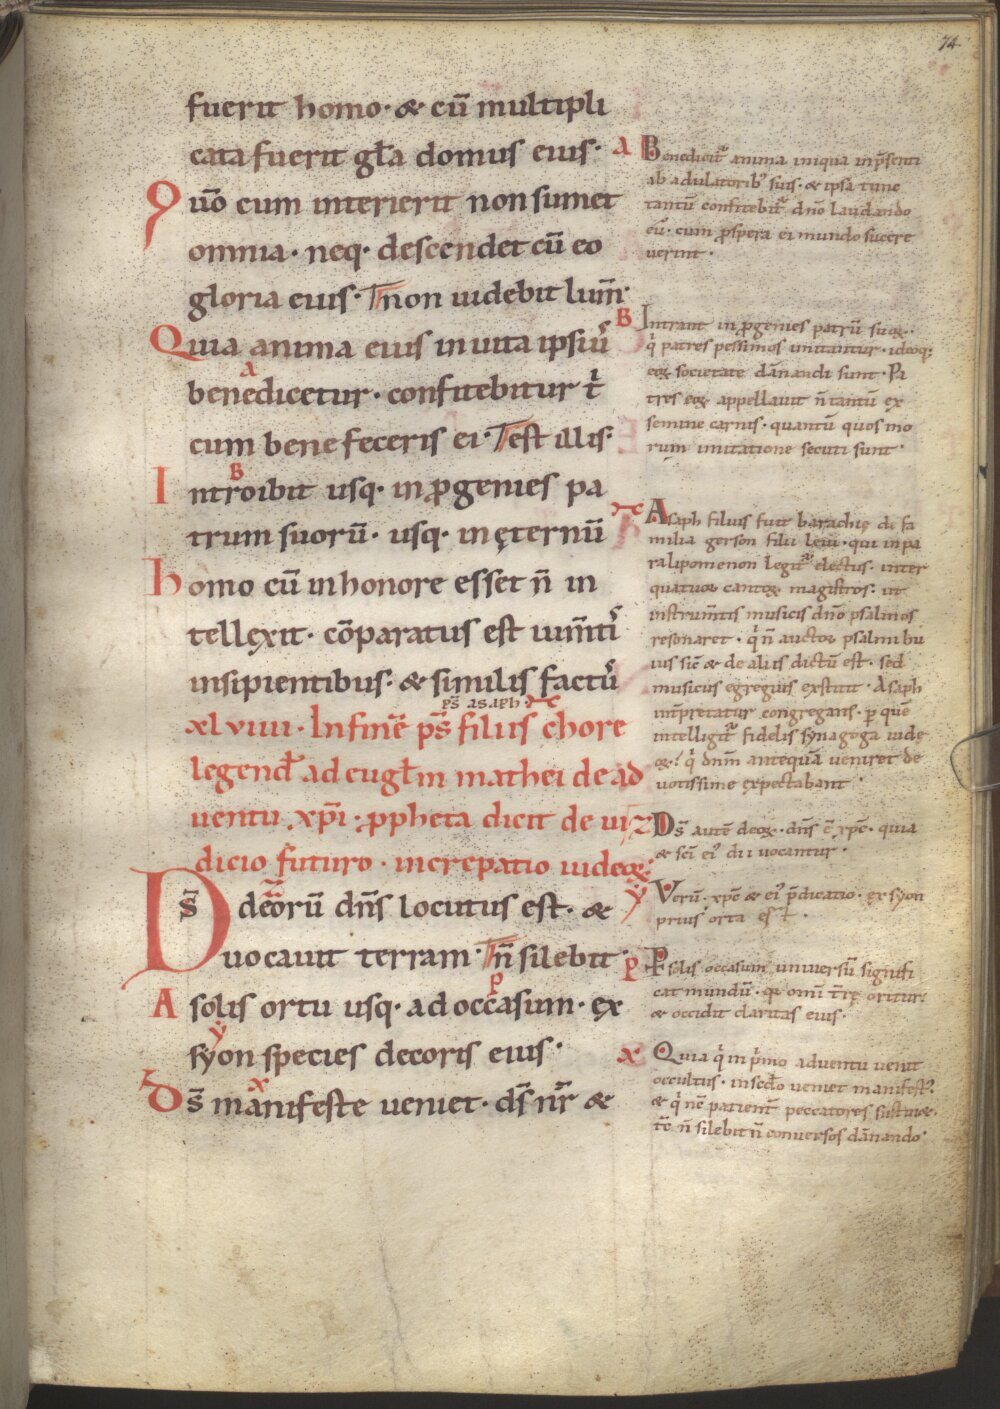 74
fuerit homo· & cū multipli
cata fuerit gła domus eius·
Quō cum interierit non sumet
omnia· neq· descendet cū eo
gloria eius· Tnon uidebit lum̄·
Quia anima eius in uita ipsiuˢ
benedicetur· confitebitur t'
cum bene feceris ei· Test illis·
Introibit usq· in ꝓgenies pa
trum suorū· usq· in ęternū
homo cū in honore esset n̄ in
tellexit· cōparatus est ium̄tiˢ
insipientibus· & similis factuˢ
ps̄ asaph·
xlviiii· In finē ps̄ filius chore
legend̄ ad eugłm mathei de ad
uentu xp̄i· ꝓpheta dicit de iu
dicio futuro· increpatio iudeoꝝ·
Ds̄ deorū dn̄s locutus est· &
uocauit terram· Tn̄ silebit·
A solis ortu usq· ad occasum· ex
syon species decoris eius·
ds̄ manifeste ueniet· ds̄ nr̄ &
A Benedicit̄ anima iniqua in p̄senti
ab adulatorib; suis· & ipsa tunc
tantū confitebit̄ dn̄o laudando
eū· cum ꝓspera ei mundo succre
uerint·
B Intrant in ꝓgenies patrū suoꝝ·
q' patres pessimos imitantur· ideoq;
eoꝝ societate dānandi sunt· Pa
tres eoꝝ appellauit n̄ tantū ex
semine carnis· quantū quos mo
rum imitatione secuti sunt·
Asaph filius fuit barachię de fa
milia gerson filii leui· qui in pa
ralipomenon legit̄ electus· inter
quatuor cantoꝝ magistros· ut
instrum̄tis musicis dn̄o psalmos
resonaret· q' n̄ auctor psalmi hu
ius sic̄ & de aliis dictū est· sed
musicus egregius exstitit· Asaph
int̄pretatur congregans· p quē
intelligit̄ fidelis synagoga iudę
oꝝ· q' dn̄m antequā ueniret de
uotissime expectabant·
Ds̄ autē deoꝝ· dn̄s ē xp̄c· quia
& sc̄i ei' dii uocantur·
Verū· xp̄c & ei' p̄dicatio· ex syon
prius orta est·
P Psolis occasum uniuersū signifi
cat mundū· q omī t̄rę oritur
& occidit claritas eius·
x Quia q' in p'mo aduentu uenit
occultus· in sc̄do ueniet manifest'·
& q' nc̄ patient̄ peccatores sustin&·
tc̄ n̄ silebit n̄ conuersos dānando·